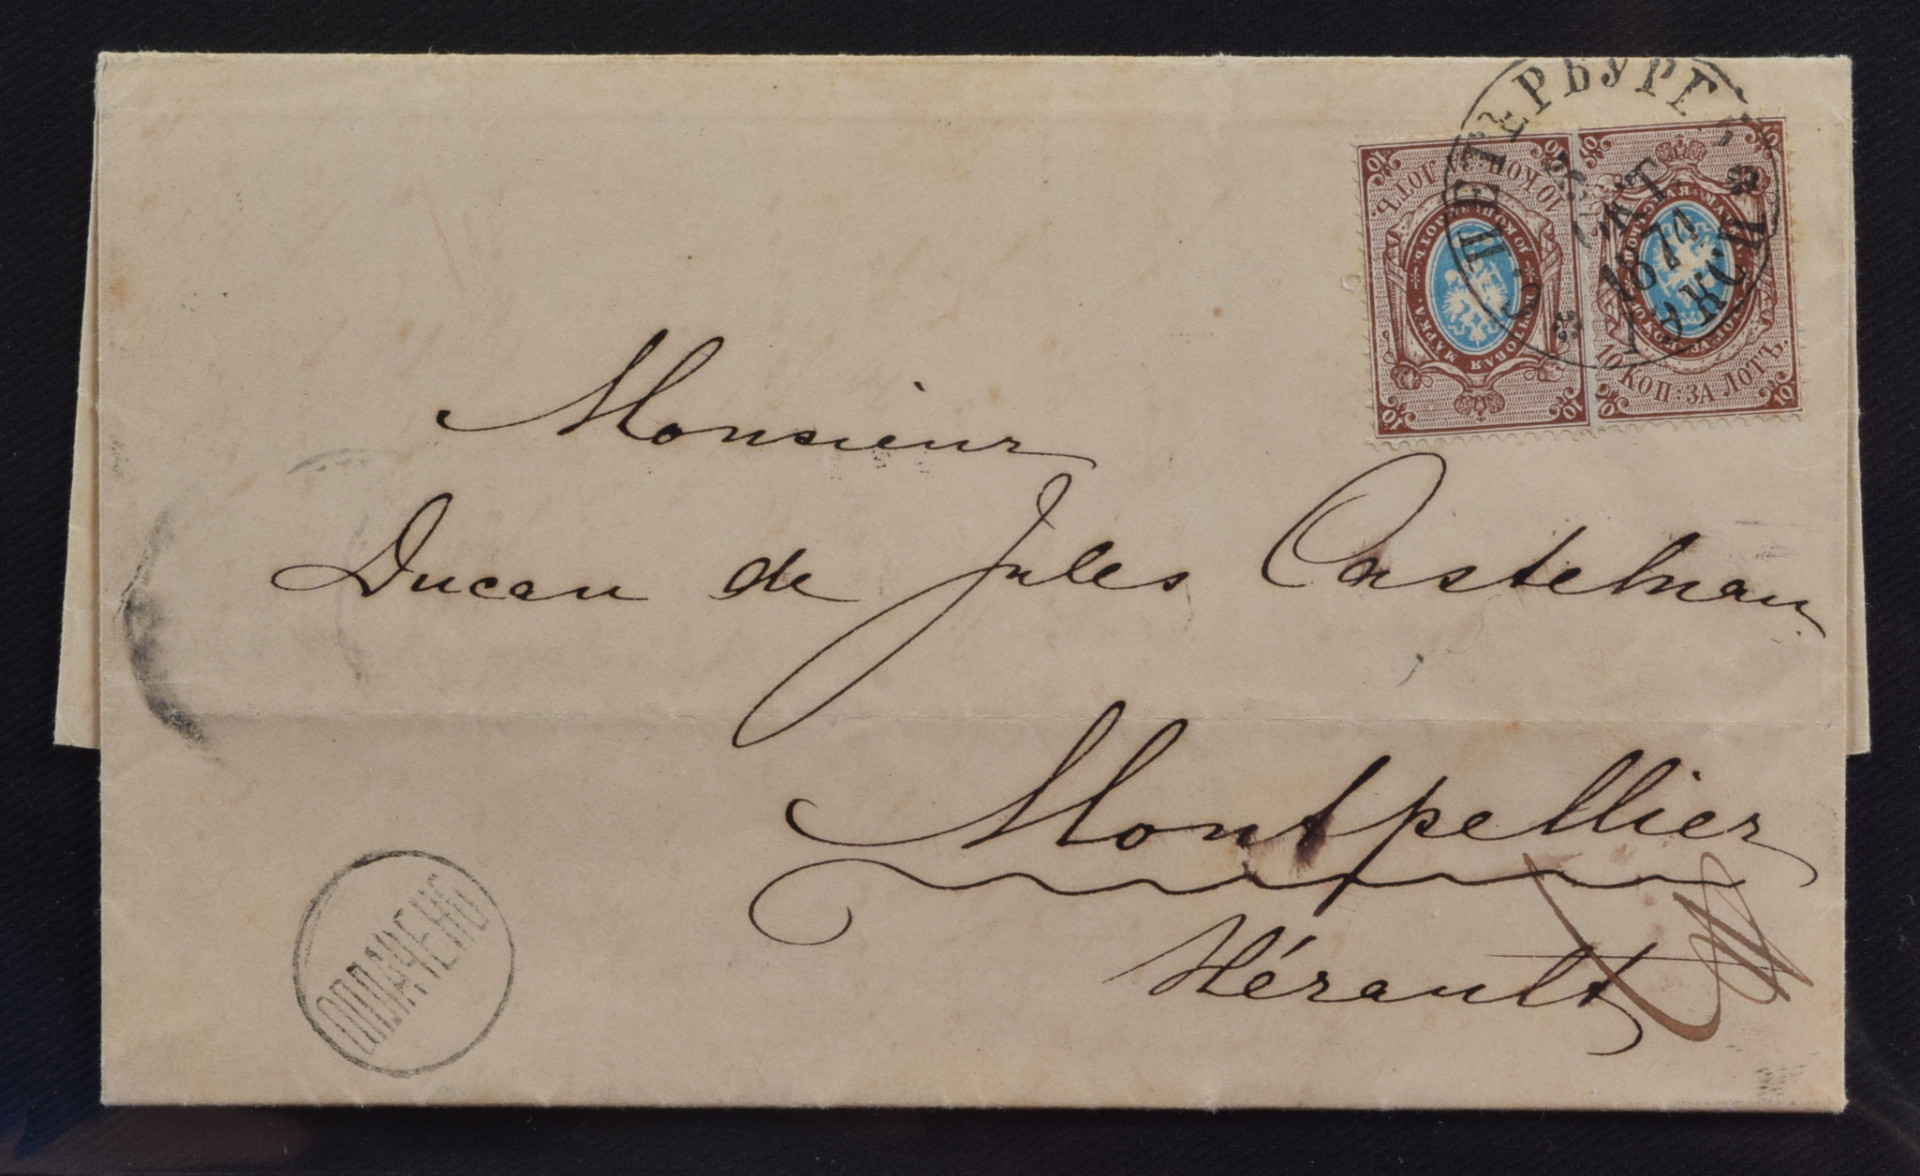 С. ПЕТЕРБУРГ
ОКТ
1871
10 КОП: ЗА ЛОТЪ.
10 КОП: ЗА ЛОТЪ.
ПОЧТОВАЯ МАРКА
Monsieur
Ducau de Jules Castelnau
Montpellier
Hérault
ОПЛАЧЕНЪ